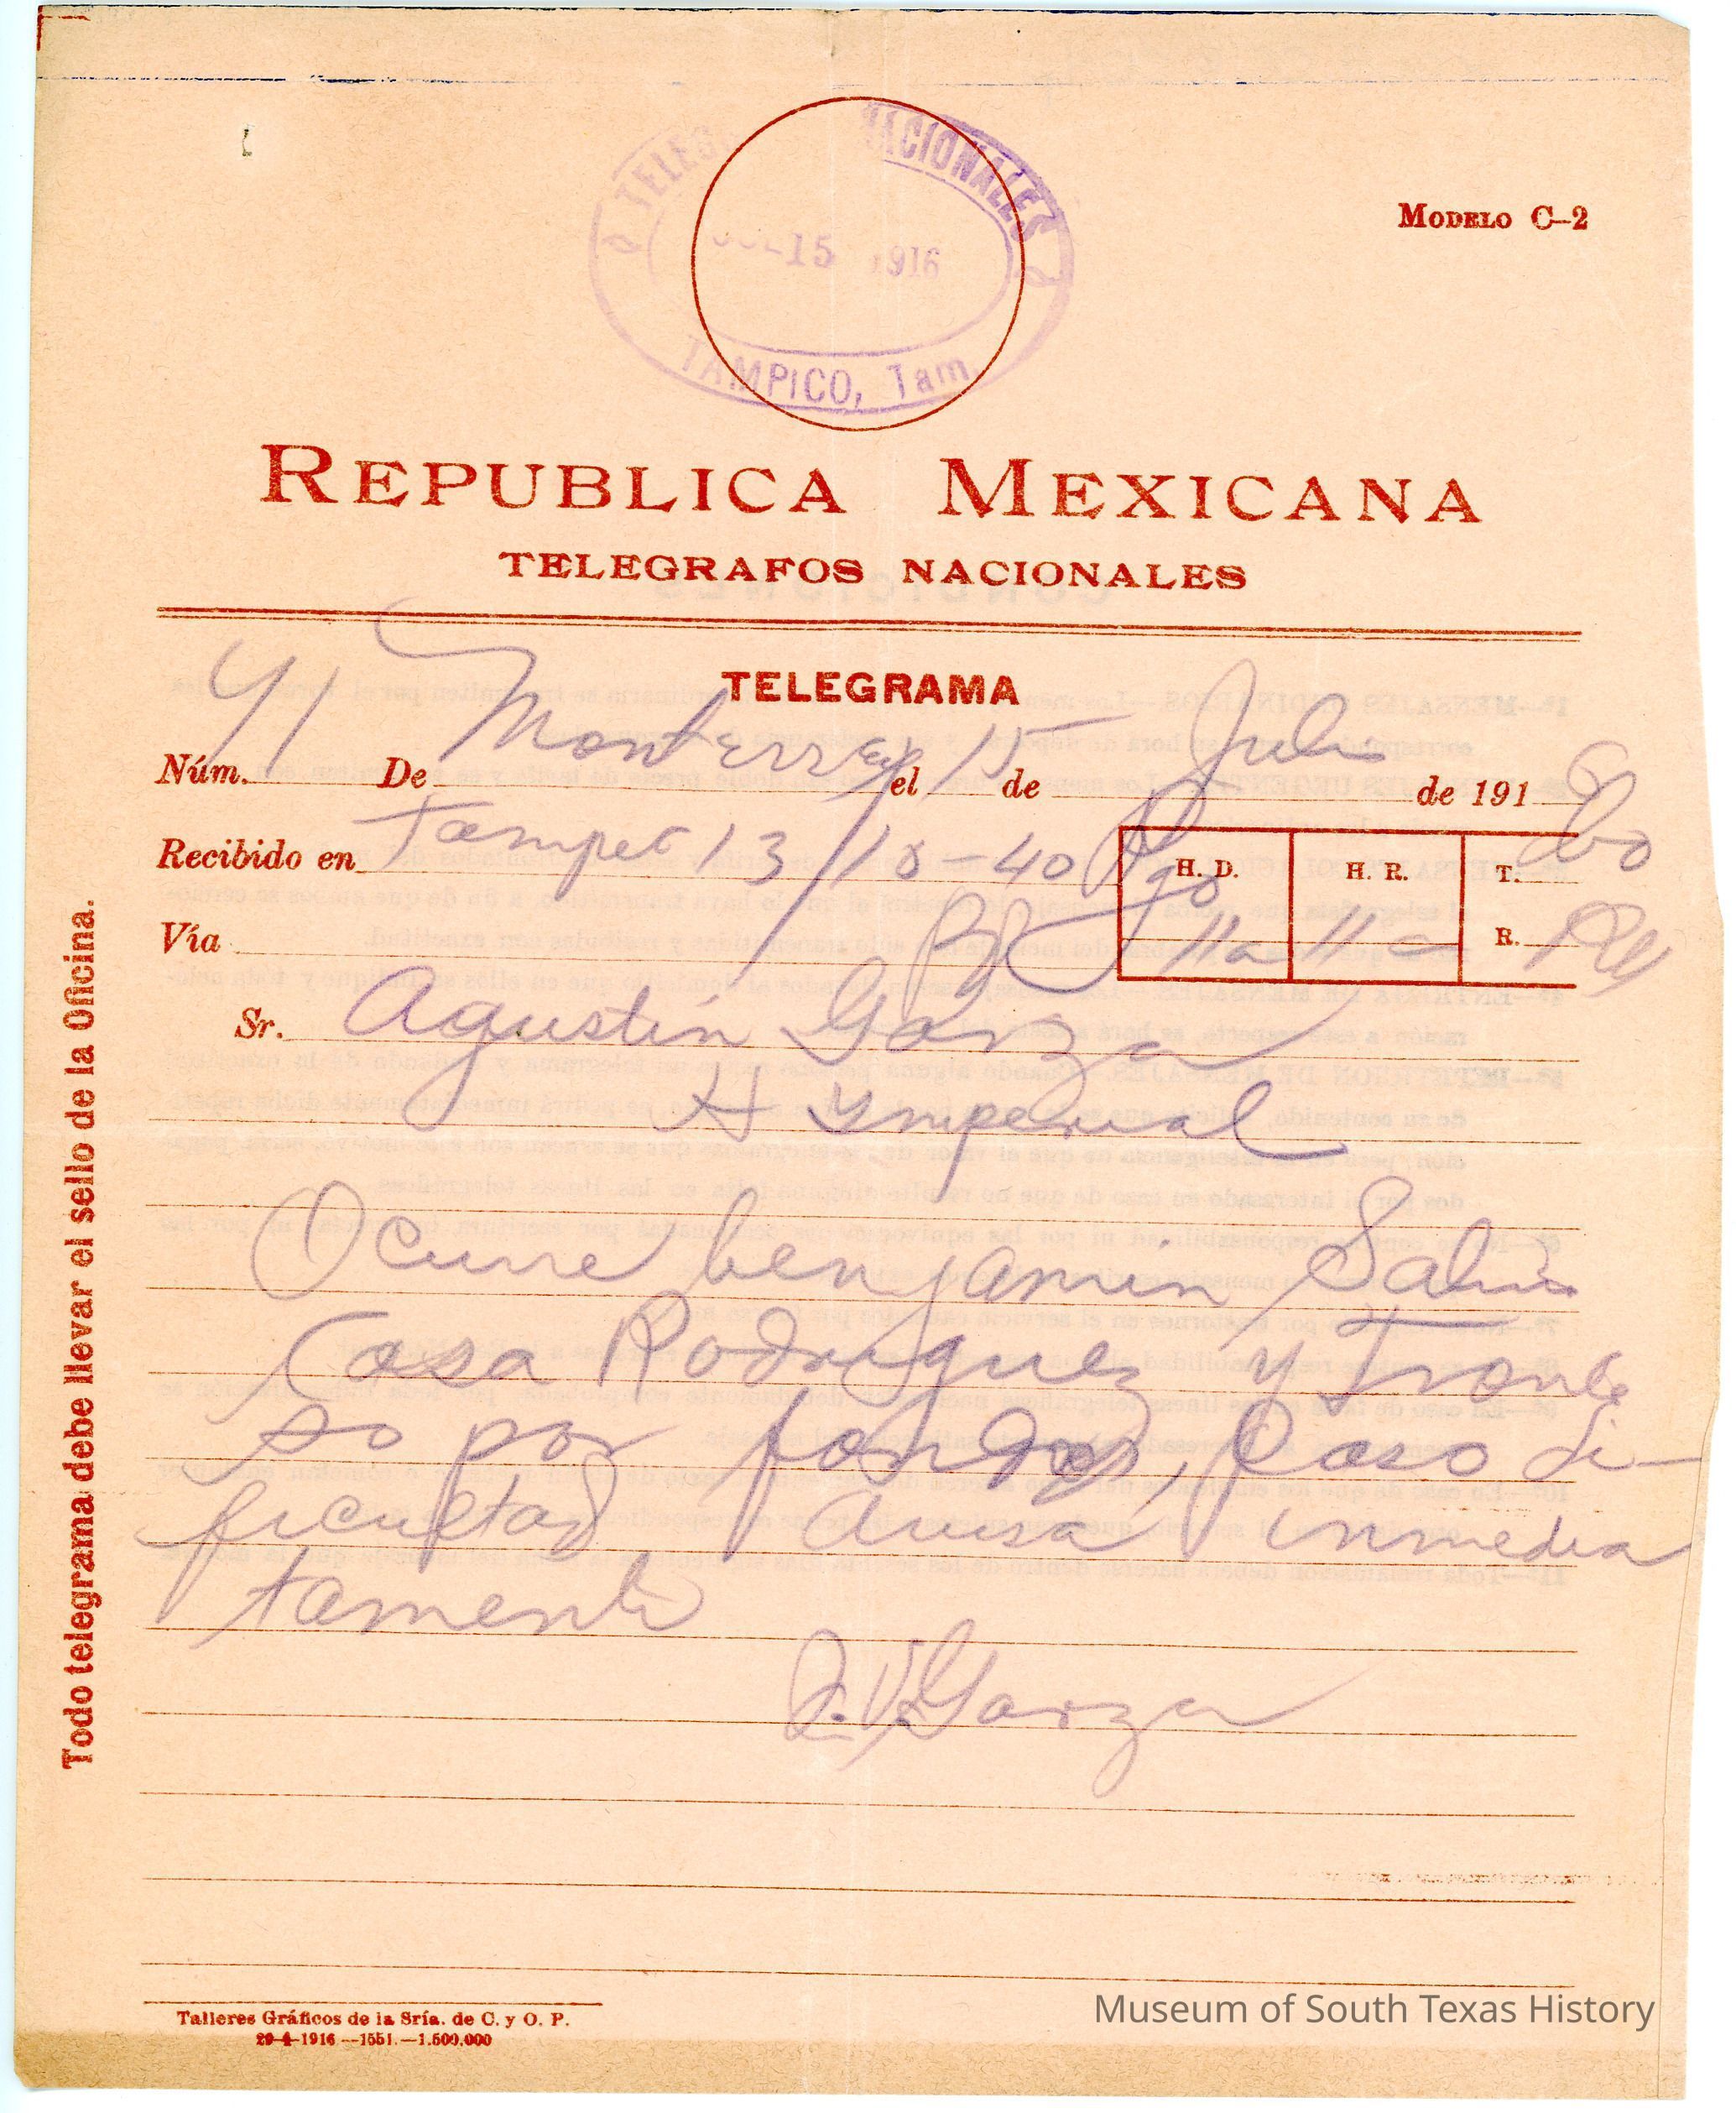 TELEG NACIONALES
JUL 15 1916
TAMPICO, Tam.
MODELO C-2
REPUBLICA MEXICANA
TELEGRAFOS NACIONALES
TELEGRAMA
Núm. 41 De Monterrey el 15 de Julio de 191
Recibido en Tampco 13/10-40 Pgo
H. D. H. R. T. Bo
Vía 11a 11a R.
Sr. Agustin Garza
H Ymperial
Ocurre benjamin Salinas
Casa Rodriguez y tranbe
so por fondos, Caso di-
ficultad avisa inmedia
tamente
Q. V. Garza
Todo telegrama debe llevar el sello de la Oficina.
Talleres Gráficos de la Sría. de C. y O. P.
29-4-1916 --1551. --1.500,000
Museum of South Texas History